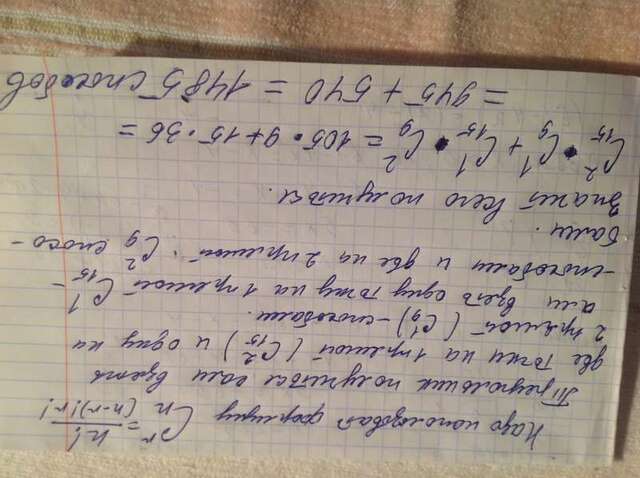 Надо использовать формулу C_n^r = n!/(n-r)!r!
Треугольник получится если взять
две точки на 1 прямой (C_15^2) и одну на
2 прямой (C_9^1) - способами.
или взять одну точку на 1 прямой C_15^1 -
- способами и две на 2 прямой. C_9^2 спосо-
бами.
Значит всего получится.
C_15^2 • C_9^1 + C_15^1 • C_9^2 = 105 • 9 + 15 • 36 =
= 945 + 540 = 1485 способов